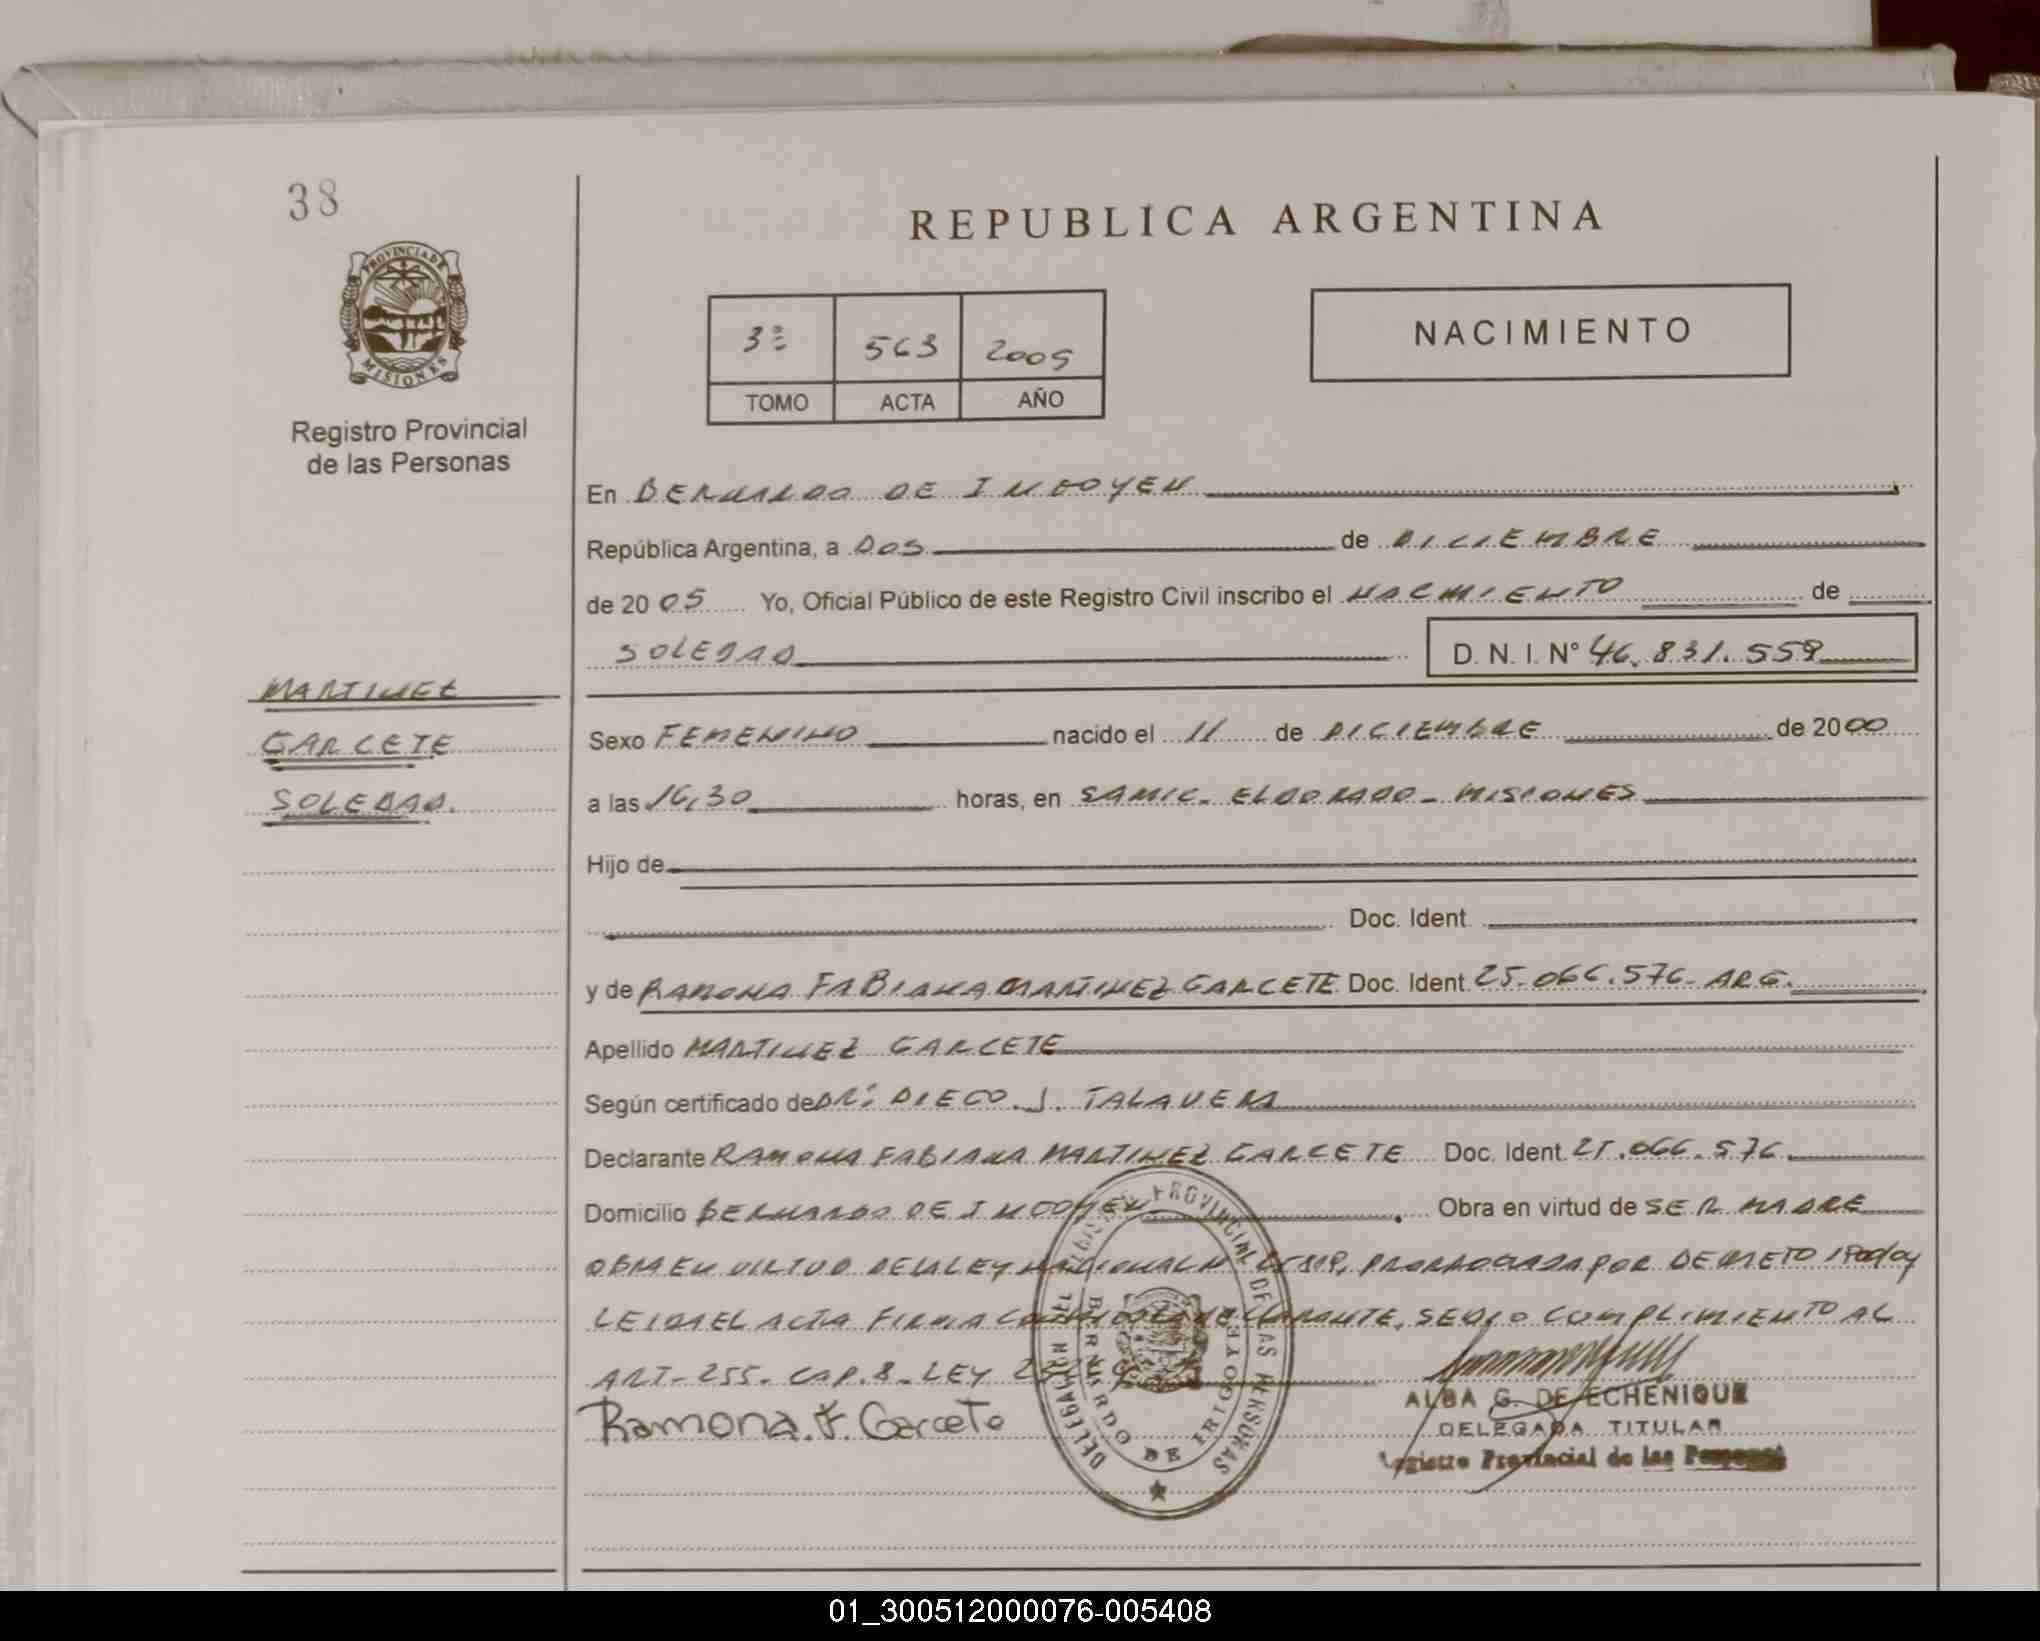 38
REPUBLICA ARGENTINA
PROVINCIA DE
MISIONES
3º 563 2005
TOMO ACTA AÑO
NACIMIENTO
Registro Provincial
de las Personas
En BERNARDO DE IRIGOYEN
República Argentina, a DOS de DICIEMBRE
de 2005 Yo, Oficial Público de este Registro Civil inscribo el NACIMIENTO de
SOLEDAD D. N. I. N° 46.831.559
MARTINEZ
GARCETE
SOLEDAD.
Sexo FEMENINO nacido el 11 de DICIEMBRE de 2000
a las 16,30 horas, en SAMIC - ELDORADO - MISIONES
Hijo de
Doc. Ident.
y de RAMONA FABIANA MARTINEZ GARCETE Doc. Ident 25.066.576 - ARG.
Apellido MARTINEZ GARCETE
Según certificado de DR: DIEGO J. TALAVERA
Declarante RAMONA FABIANA MARTINEZ GARCETE Doc. Ident. 25.066.576
Domicilio BERNARDO DE IRIGOYEN Obra en virtud de SER MADRE
OBRA EN VIRTUD DE LA LEY NACIONAL N° PRORROGADA POR DECRETO
LEIDA EL ACTA FIRMA DECLARANTE, SE DIO COMPLIMIENTO AL
ART- 255- CAP. 8- LEY
Ramona. F. Garcete
DELEGACION DEL REGISTRO PROVINCIAL DE LAS PERSONAS
BERNARDO DE IRIGOYEN
ALBA G. DE ECHENIQUE
DELEGADA TITULAR
Registro Provincial de las Personas
01_300512000076-005408